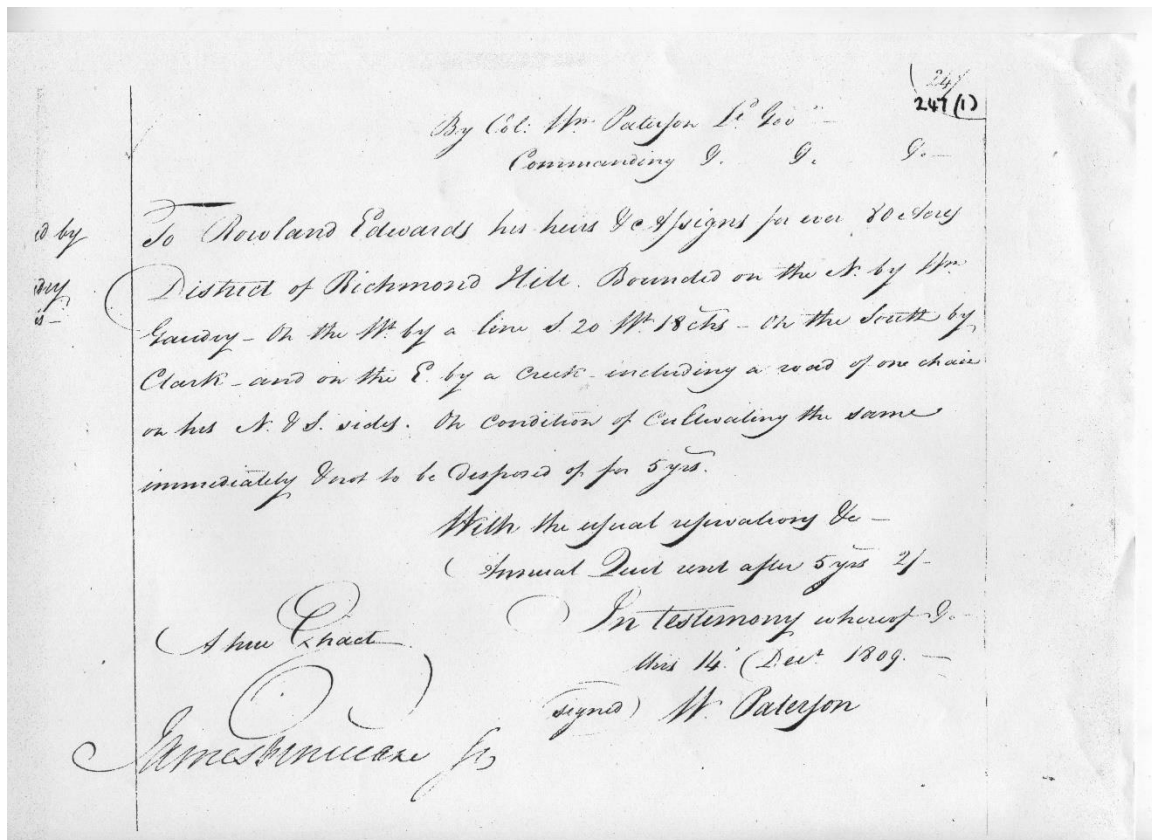 247
247(1)
By Col: Wm Paterson Lt Govr —
Commanding &. &. &. —
To Rowland Edwards his heirs &c Assigns for ever 80 Acres
District of Richmond Hill. Bounded on the N. by Wm
Gaudry — On the Wt. by a line S. 20 Wt 18 chs — On the South by
Clark — and on the E. by a Creek — including a road of one chain
on his N. & S. sides. On condition of Cultivating the same
immediately & not to be disposed of for 5 yrs.
With the usual reservations &c —
Annual Quit rent after 5 yrs 2/-
In testimony whereof &. —
this 14. Decr 1809. —
(signed) W. Paterson
A true Extract
James Finucane
ed by